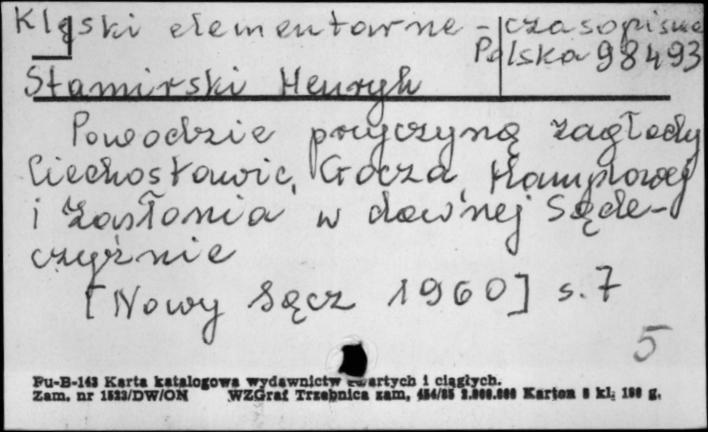 Klęski elementarne - czasopisma
Polska 98493
Stamirski Henryk
Powodzie przyczyną zagłady
Ciechosławic, Gocza, Kamplowej
i Zasłonia w dawnej Sąde-
czyźnie
[Nowy Sącz 1960] s. 7
5
Pu-B-143 Karta katalogowa wydawnictw zwartych i ciągłych.
Zam. nr 1523/DW/ON WZGraf Trzebnica zam, 454/85 2.000.000 Karton 5 kl. 190 g.